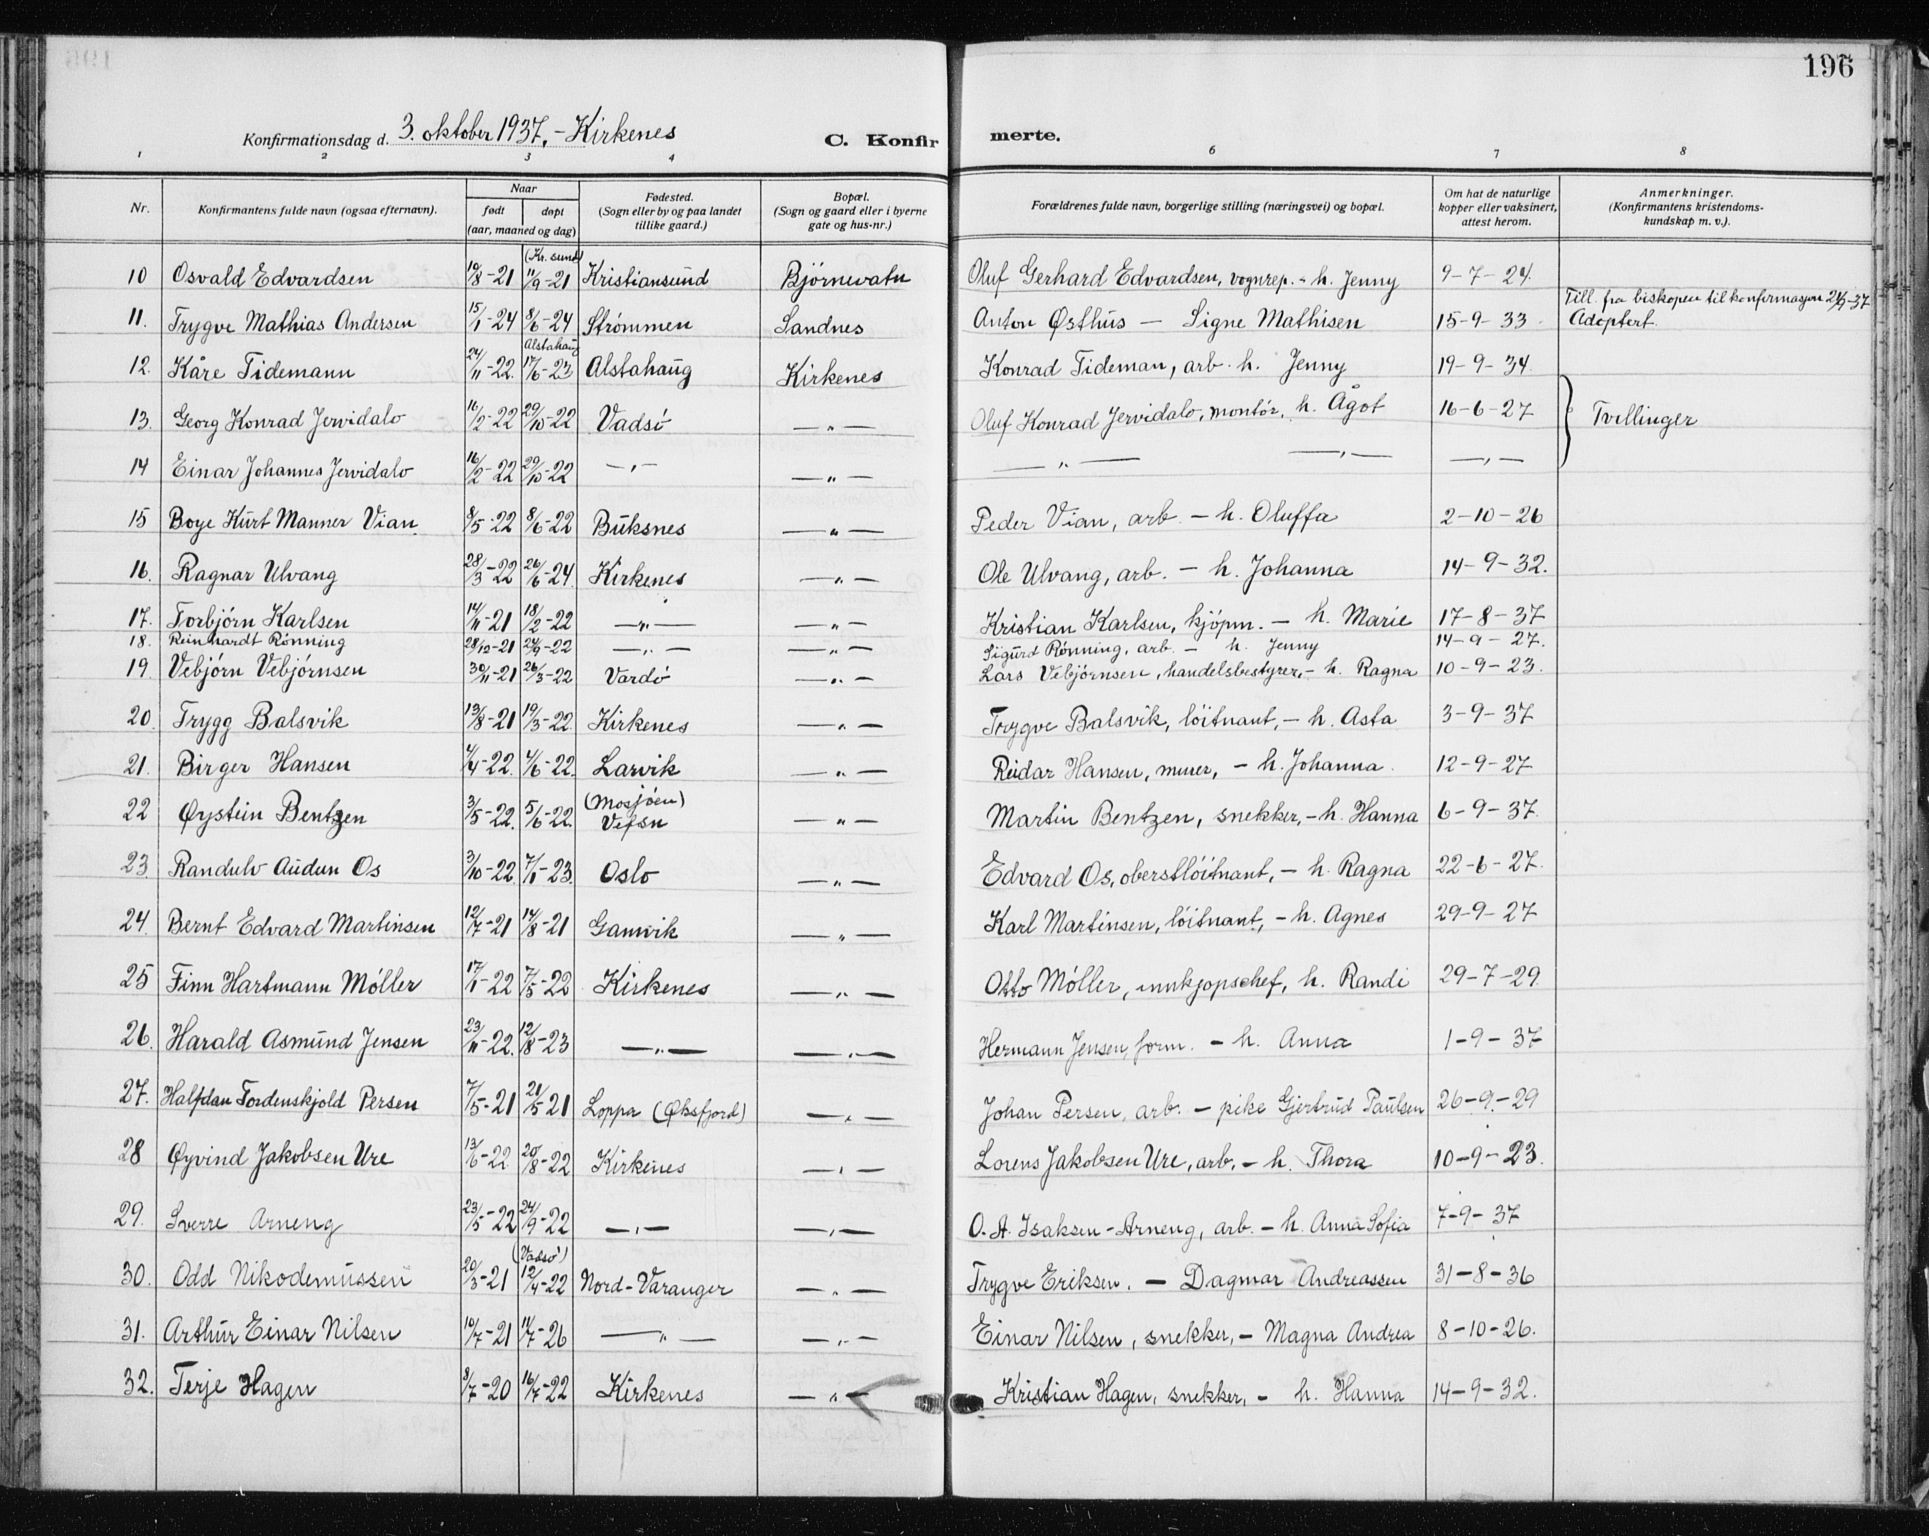 196
Konfirmationsdag d. 3. oktober 1937, - Kirkenes C. Konfir merte.
1 2 3 4 6 7 8
Nr. Konfirmantens fulde navn (ogsaa efternavn). Naar født døpt (aar, maaned og dag) Fødested. (Sogn eller by og paa landet tillike gaard.) Bopæl. (Sogn og gaard eller i byerne gate og hus-nr.) Forældrenes fulde navn, borgerlige stilling (næringsvei) og bopæl. Om hat de naturlige kopper eller vaksinert, attest herom. Anmerkninger. (Konfirmantens kristendoms-kundskap m. v.).
(Kr. sund)
10 Osvald Edvardsen 10/8-21 11/9-21 Kristiansund Bjørnevatn Oluf Gerhard Edvardsen, vognrep. - h. Jenny 9-7-24.
Till. fra biskopen til konfirmasjon 21/9-37
11. Trygve Mathias Andersen 15/1-24 8/6-24 Strømmen Sandnes Anton Østhus — Signe Mathisen 15-9-33. Adoptert.
Alstahaug
12. Kåre Tidemann 24/11-22. 17/6-23 Alstahaug Kirkenes Konrad Tideman, arb. h. Jenny 19-9-34.
13. Georg Konrad Jervidalo 16/2-22 29/10-22 Vadsö —„— Oluf Konrad Jervidalo, montör, h. Ågot 16-6-27 Tvillinger
14 Einar Johannes Jervidalo 16/2-22 29/10-22 —„— —„— —„— —„— —„—
15 Boye Kurt Manner Vian 8/5-22 8/6-22 Buksnes —„— Peder Vian, arb. — h. Oluffa 2-10-26
16. Ragnar Ulvang 28/3-22 26/6-24. Kirkenes —„— Ole Ulvang, arb. — h. Johanna 14-9-32.
17. Torbjörn Karlsen 14/11-21 18/2-22 —„— —„— Kristian Karlsen, kjöpm. — h. Marie 17-8-37
18. Reinhardt Rönning 28/12-21 24/9-22 —„— —„— Sigurd Rönning, arb. — h. Jenny 14-9-27.
19. Vebjörn Vebjörnsen 30/11-21 26/3-22 Vardö —„— Lars Vebjörnsen, handelsbestyrer, — h. Ragna 10-9-23.
20. Trygg Balsvik 13/8-21 19/3-22. Kirkenes —„— Trygve Balsvik, löitnant, — h. Asta 3-9-37
21. Birger Hansen 4/4-22. 4/6-22. Larvik —„— Reidar Hansen, murer, — h. Johanna 12-9-27
(Mosjöen)
22 Øystein Bentzen 3/5-22. 5/6-22. Vefsn —„— Martin Bentzen, snekker, — h. Hanna 6-9-37.
23. Randulv Audun Os 3/10-22. 7/1-23. Oslo —„— Edvard Os, oberstlöitnant, — h. Ragna 22-6-27.
24. Bernt Edvard Martinsen 12/7-21 14/8-21 Gamvik —„— Karl Martinsen, löitnant, — h. Agnes 29-9-27
25 Finn Hartmann Möller 17/1-22 7/5-22 Kirkenes —„— Otto Möller, innkjopschef, h. Randi 29-7-29.
26. Harald Asmund Jensen 23/11-22. 12/8-23 —„— —„— Hermann Jensen, form. — h. Anna 1-9-37
27. Halfdan Tordenskjold Persen 7/5-21 21/5 21 Loppa (Øksfjord) —„— Johan Persen, arb. — pike Gjertrud Paulsen 26-9-29
28 Øyvind Jakobsen Ure 13/6-22 20/8-22 Kirkenes —„— Lorens Jakobsen Ure, arb, — h. Thora 10-9-23.
29. Sverre Arneng 23/5-22 24/9-22 —„— —„— O. A. Isaksen-Arneng, arb. — h. Anna Sofia 7-9-37
(Vadsö)
30. Odd Nikodemussen 20/3-21 12/4-22 Nord-Varanger —„— Trygve Eriksen. — Dagmar Andreassen 31-8-36
31. Arthur Einar Nilsen 10/7-21 11/7-26 —„— —„— Einar Nilsen, snekker, — Magna Andrea 8-10-26.
32. Terje Hagen 3/7-20 16/7-22 Kirkenes —„— Kristian Hagen, snekker, — h. Hanna 14-9-32.